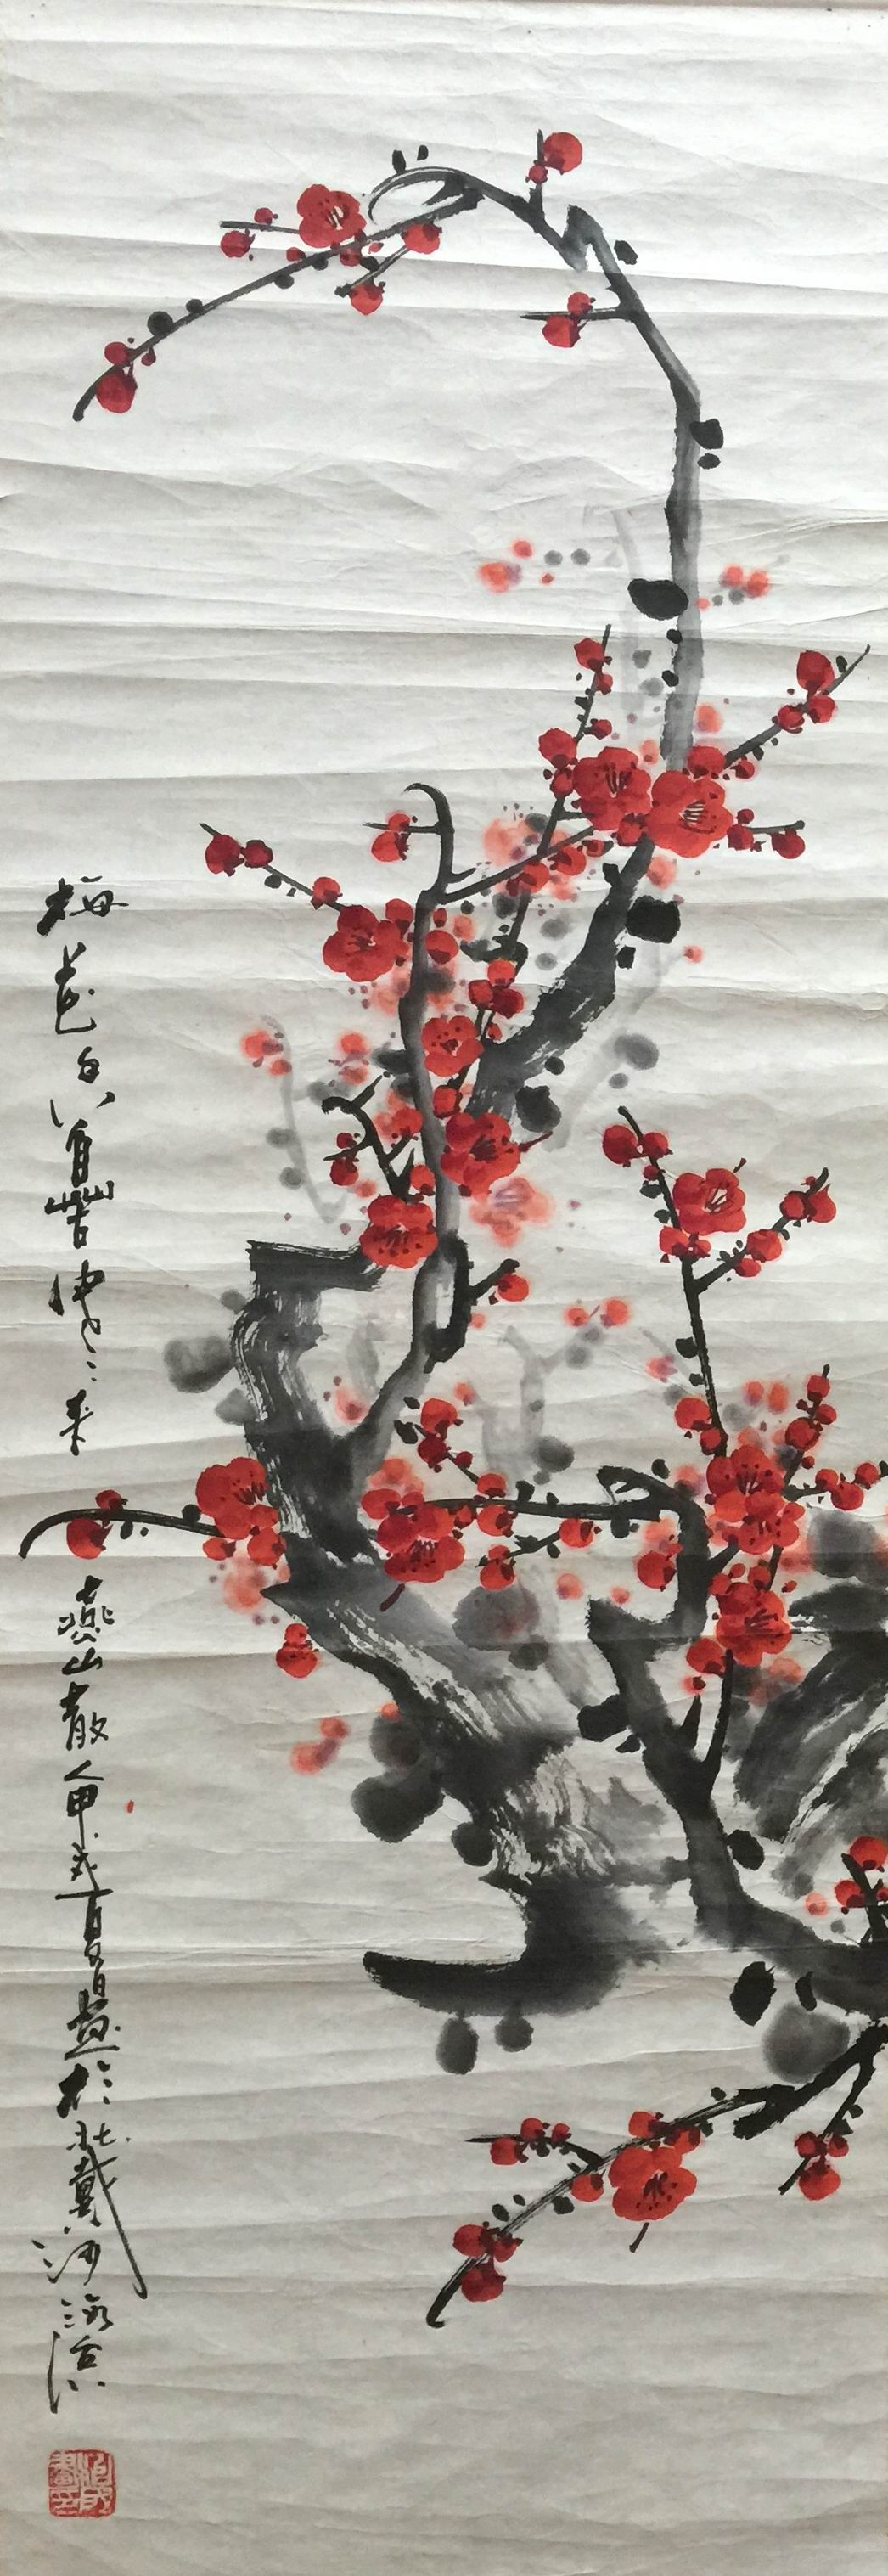 梅花香自苦寒来
燕山散人甲戌夏日畫於北戴河海滨